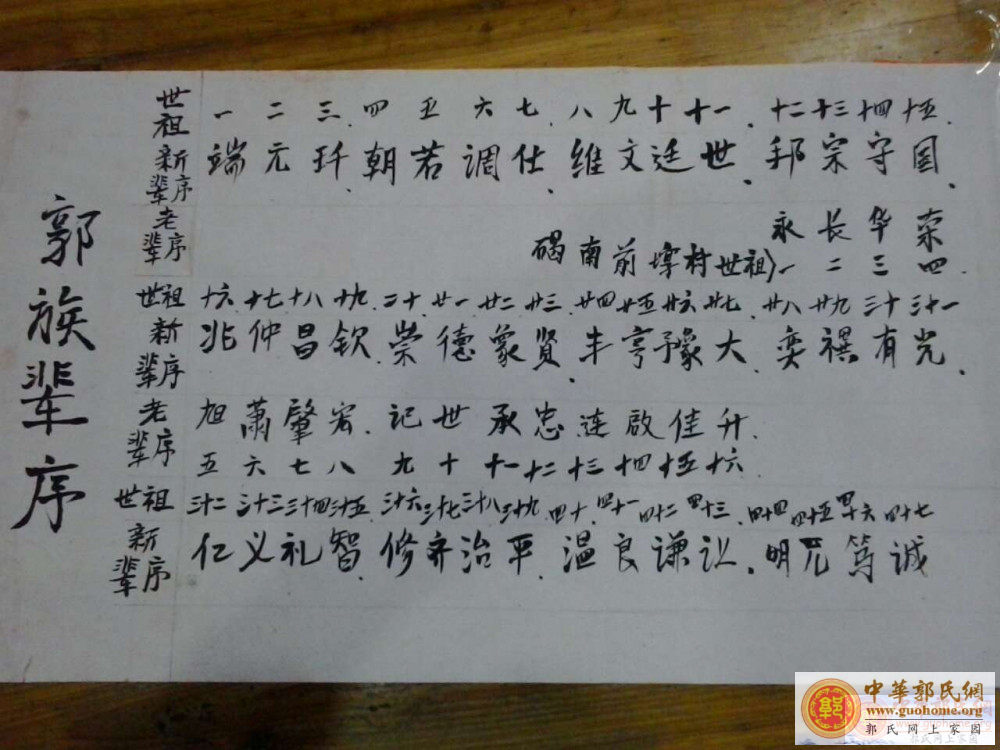 郭族辈序
世祖 一 二 三、四 五 六 七、八 九 十 十一、十二 十三 十四 十五、
新辈序 端 元 玕、朝 若 调 仕、维 文 廷 世、邦 宗 守 国、
老辈序 永 长 华 荣
碣南前 村世祖）一 二 三 四
世祖 十六、十七、十八 十九、二十、廿一、廿二、廿三、廿四 廿五 廿六 廿七、廿八 廿九 三十 三十一
新辈序 兆 仲 昌 钦、荣 德 象 贤、丰 亨 豫 大、奕 禩 有 光、
老辈序 旭 萧 肇 宏、记 世 承 忠、连 啟 佳 升、
五 六 七 八 九 十 十一 十二 十三 十四 十五 十六
世祖 三十二 三十三 三十四 三十五、三十六 三十七 三十八 三十九、四十、四十一 四十二 四十三、四十四 四十五 四十六 四十七
新辈序 仁 义 礼 智、修 齐 治 平、温 良 谦 让、明 允 笃 诚
中華郭氏網
www.guohome.org
郭氏网上家园